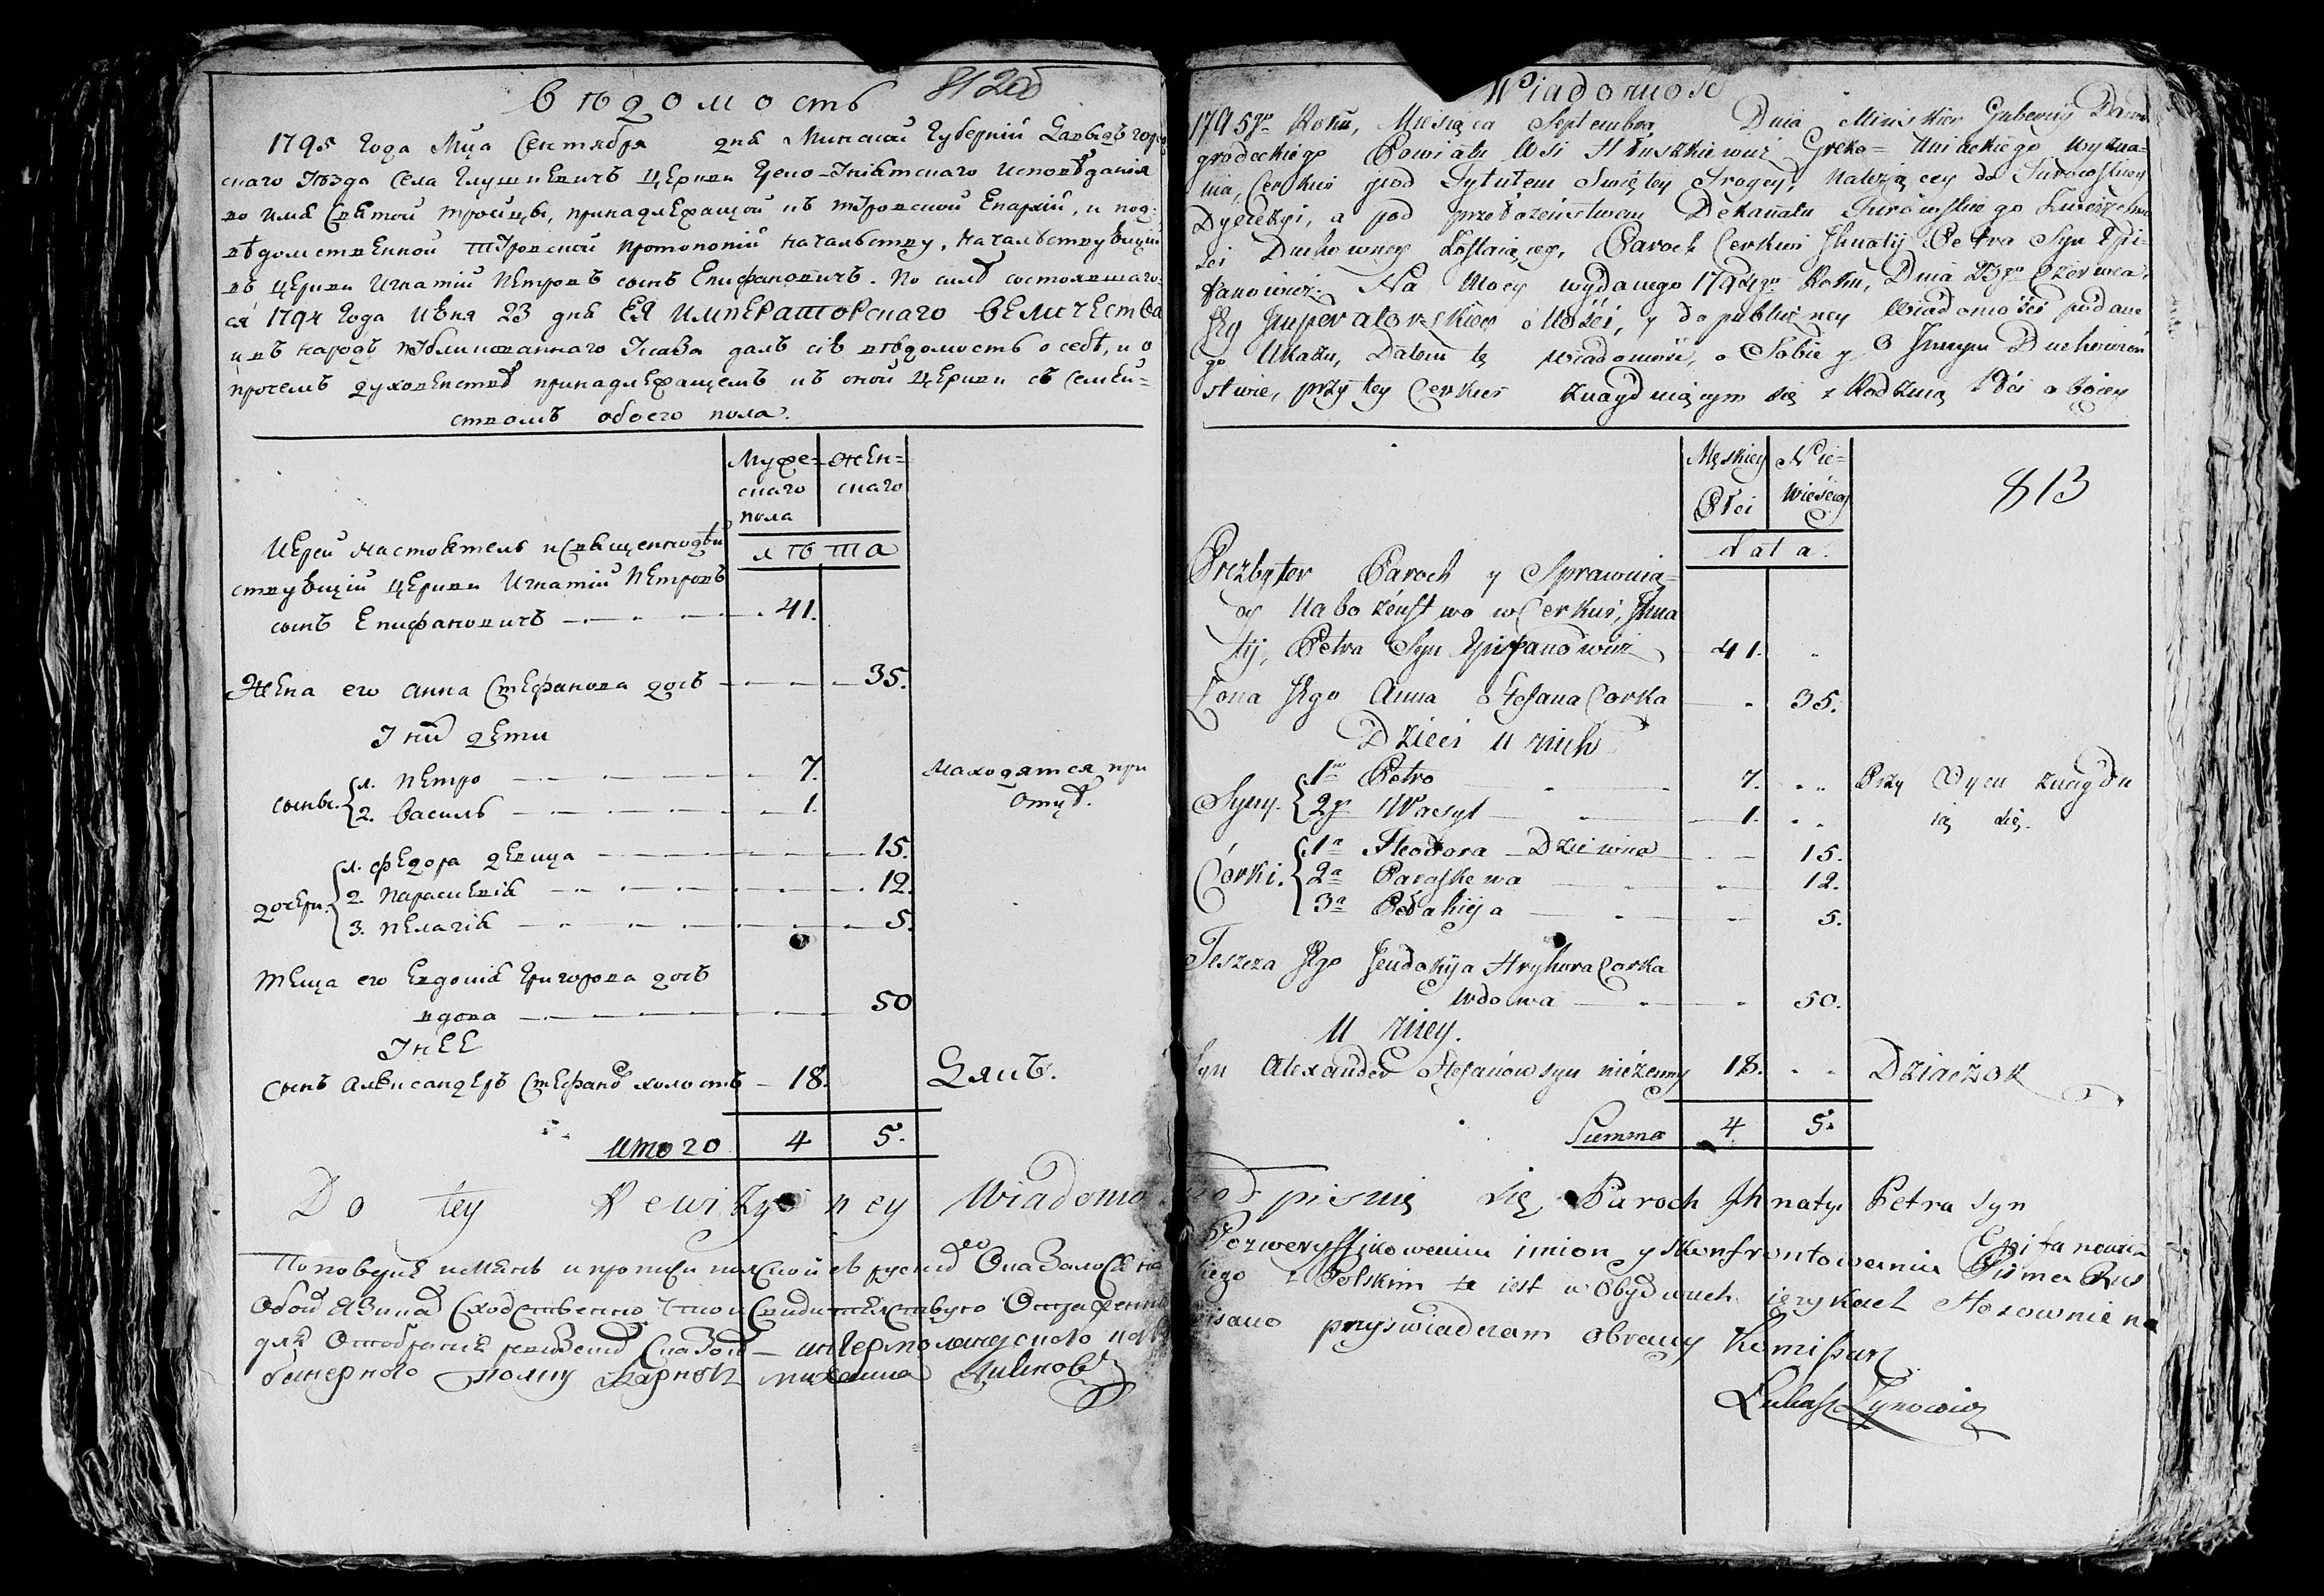 Вѣдомость
812об
1795 года Мца Сентября дня Минской Губерніи Давыдъ горо
скаго Уѣзда Села Глушкевичъ Церкви Греко-Уніятскаго Исповѣданія
во имя Святой Тройцы, принадлежащой къ Туровской Епархіи, и под:
вѣдомственной Туровской Протопопіи начальству, начальствующій
въ Церкви Игнатій Петровъ сынъ Епифановичъ. По силѣ состоявшаго
ся 1794 года Июня 23 дня ЕЯ ИМПЕРАТОРСкаго ВЕЛИЧЕСТВА
и въ народъ публикованнаго Указа далъ сію вѣдомость о себѣ, и о
прочемъ духовенствѣ принадлежащемъ къ оной Церкви съ семей=
ствомъ обоего пола.
Муже=скаго пола
Жен=скаго
лѣта
Иерей настоятель и священнодѣй
ствующій Церкви Игнатій Петровъ
сынъ Епифановичъ 41.
Жена его Анна Стефанова дочь 35.
У нихъ дети
сыны. 1. Петро 7. находятся при
2. Василь 1. отцѣ.
1. Федора девица 15.
дочери. 2. Параскевія 12.
3. Пелагія 5.
Теща его Евдокія Григорова дочь
вдова 50
У нее
сынъ Александеръ Стефановъ холостъ 18. Дякъ.
Итого 4 5.
Do tey Rewizyiney Wiadomo
По поверке имянъ и прописи полской съ рускою Оказалось на
Обоихъ языкахъ Сходственно
для
Wiadomosc
1795go Roku, Miesiąca Septembra Dnia Minskiey Gubernij Dawid
grodeckiego Powiatu Wsi Hłuszkiewicz Greko=Uniackiego Wyzna=
nia, Cerkwi pod Tytułem Swiętey Troycy, należącey do Turowskiey
Dyecezyi, a pod przełożenstwem Dekanatu Turowskiego Zwierzchno
sci Duchowney zostaiącey, Paroch Cerkwi Ihnatij Petra Syn Epi=
fanowicz. Na Mocy wydanego 1794go Roku, Dnia 23go Czerwca,
Jey Imperatorskiey Mości, y do publiczney Wiadomości podane
go Ukazu, Dałem tę wiadomość, o Sobie y o Innym Duchowień
stwie, przy tey Cerkwi znayduiącym się z Rodziną Płci oboiey
Męskiey Płci
Niewieściey
Lata.
813
Prezbyter Paroch y Sprawuią=
cy Nabożeństwo w Cerkwi, Ihna
tij, Petra Syn Epifanowicz 41.
Żona Jego Anna Stefana Corka 35.
Dzieci u nich
Syny. 1n Petro 7. Przy Oycu znaydu
2gi Wasyl 1. ią się.
1a Theodora Dziewica 15.
Córki. 2a Paraskewa 12.
3a Pełahija 5.
Teszcza Jego Jeudokija Hryhora Corka
wdowa 50.
U niey.
Syn Alexander Stefanów syn nieżenny 18. Dziaczok
Summa 4 5.
podpisuię się Paroch Ihnaty Petra syn
Epifanowicz
Po zweryfikowaniu imion y skonfrontowaniu Pisma Rus
kiego z Polskim że iest w Obydwuch ięzykach Stosownie na
pisano przyświadczam obrany Komisarz
Łukasz Zynowicz